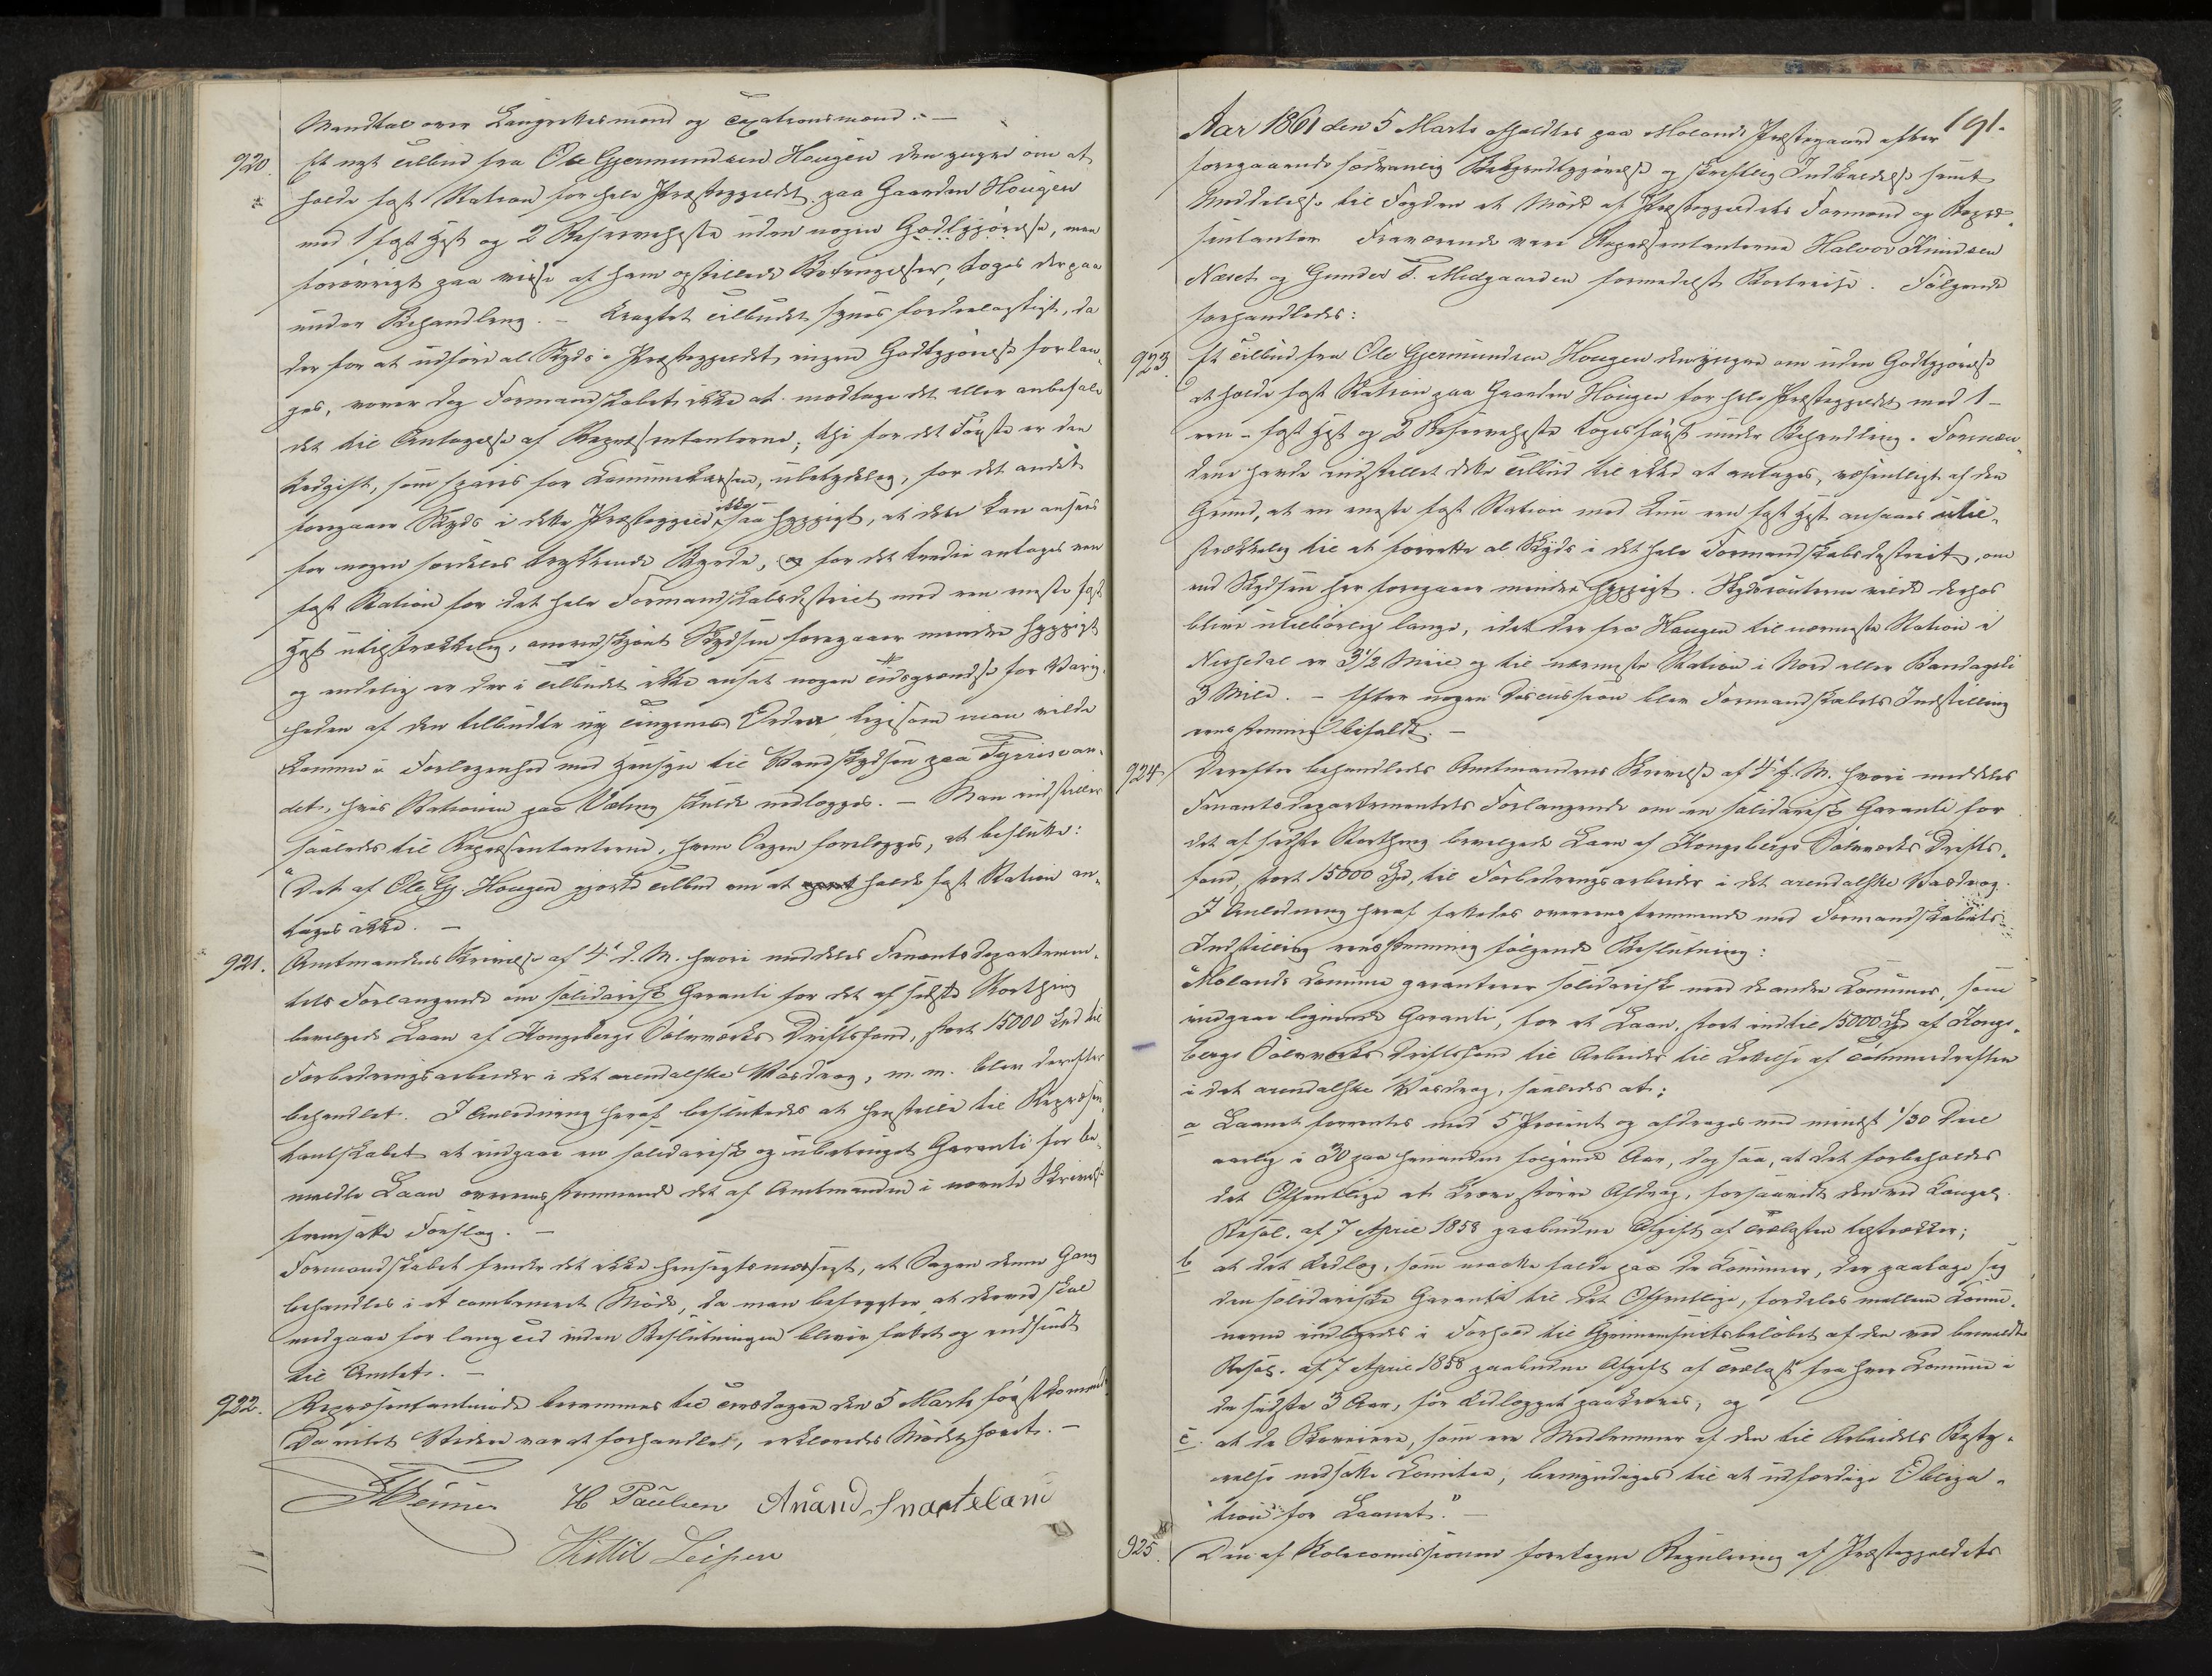 Mandtal over Laugrettesmænd og Taxationsmænd. –
920. Et nyt Tilbud fra Ole Gjermundsen Hougen den yngre om at
holde fast Station for hele Præstegjeldet paa Gaarden Hougen
med 1 fast Hest og 2 Reserveheste uden nogen Godtgjørelse, men
forøvrigt paa visse af ham opstillede Betingelser, toges derpaa
under Behandling. – Uagtet Tilbudet synes fordeelagtigt, da
der for at udføre al Skyds i Præstegjeldet ingen Godtgjørelse forlan-
ges, vover dog Formandskabet ikke at modtage det eller anbefale
det til Antagelse af Repræsentanterne; thi for det Første er den
Udgift, som spares for Communekassen, ubetydelig, for det andet
foregaaer Skyds i dette Præstegjeld ikke saa hyppigt, at dette kan ansees
for nogen særdeles trykkende Byrde, og for det tredie antages een
fast Station for det hele Formandskabsdistrict med een eneste fast
Hest utilstrækkelig, omendskjønt Skydsen foregaaer mindre hyppigt
og endelig er der i Tilbudet ikke ansat nogen Tidsgrændse for Varig-
heden af den tilbudte ny Tingenes Orden ligesom man vilde
komme i Forlegenhed med Hensyn til Vandskydsen paa Fyrisvan-
det, hvis Stationen paa Væting skulde nedlægges. – Man indstiller
saaledes til Repræsentanterne, hvem Sagen forelægges, at beslutte:
"Det af Ole Gj. Hougen gjorte Tilbud om at holde fast Station an-
tages ikke. –
921. Amtmandens Skrivelse af 4de d. M. hvori meddeles Finantsdepartemen-
tets Forlangende om solidarisk Garanti for det af sidste Storthing
bevilgede Laan af Kongsbergs Sølvværks Driftsfond, stort 15000 Spd til
Forbedringsarbeider i det arendalske Vasdrag, m. m. blev derefter
behandlet. I Anledning heraf besluttedes at henstille til Repræsen-
tantskabet at indgaae en solidarisk og ubetinget Garanti for be-
meldte Laan overensstemmende det af Amtmanden i nævnte Skrivelse
fremsatte Forslag. –
Formandskabet finder det ikke hensigtsmæssigt, at Sagen denne Gang
behandles i et combineret Møde, da man befrygter, at derved skal
medgaae for lang Tid inden Beslutningen bliver fattet og indsendt
til Amtet. –
922. Repræsentantmøde berammes til Tirsdagen den 5 Marts førstkommende
Da intet Videre var at forhandle, erklæredes Mødet hævet. –
H Paulsen Anand Snarteland
Kittil Leipen
191.
Aar 1861 den 5 Marts afholdtes paa Molands Præstegaard efter
foregaaende sædvanlig Bekjendtgjørelse og skriftlig Indkaldelse samt
Meddelelse til Fogden et Møde af Præstegjeldets Formænd og Repræ-
sentanter. Fraværende vare Repræsentanterne Halvor Knudsen
Næset og Gunder T. Midgaarden formedelst Bortreise. Følgende
forhandledes:
923. Et Tilbud fra Ole Gjermundsen Hougen den yngre om uden Godtgjørelse
at holde fast Station paa Gaarden Hougen for hele Præstegjeldet med 1 –
een – fast Hest og 2 Reserveheste toges først under Behandling. Formæn-
dene havde indstillet dette Tilbud til ikke at antages, væsentligt af den
Grund, at en eneste fast Station med kun een fast Hest ansaaes util-
strækkelig til at forrette al Skyds i det hele Formandskabsdistrict, om
end Skydsen her foregaaer mindre hyppigt. Skydsrouterne vilde derhos
blive utilbørlig lange, idet der fra Hougen til nærmeste Station i
Nissedal er 3 1/2 Miil og til nærmeste Station i Nord eller Bandagsli
3 Mile. – Efter nogen Discussion blev Formandskabets Indstilling
eenstemmig bifaldt. –
924. Derefter behandledes Amtmandens Skrivelse af 4de f. M. hvori meddeles
Finantsdepartementets Forlangende om en solidarisk Garanti for
det af sidste Storthing bevilgede Laan af Kongsbergs Sølvværks Drifts-
fond, stort 15000 Spd, til Forbedringsarbeider i det arendalske Vasdrag.
I Anledning heraf fattedes overensstemmende med Formandskabets
Indstilling eenstemmig følgende Beslutning:
"Molands Commune garanterer solidarisk med de andre Communer, som
indgaae lignende Garanti, for et Laan, stort indtil 15000 Spd af Kongs-
bergs Sølvværks Driftsfond til Arbeider til Lettelse af Tømmerdriften
i det arendalske Vasdrag, saaledes at:
a Laanet forrentes med 5 Procent og afdrages med mindst 1/30 Deel
aarlig i 30 paa hinanden følgende Aar, dog saa, at det forbeholdes
det Offentlige at kræve større Afdrag, forsaavidt den ved Kongel.
Resol. af 7 April 1858 paabudne Afgift af Trælasten tilstrækker;
b at det Udlæg, som maatte falde paa de Communer, der paatage sig
den solidariske Garanti til det Offentlige, fordeles mellem Commu-
nerne indbyrdes i Forhold til Gjennemsnitsbeløbet af den ved bemeldte
Resol. af 7 April 1858 paabudne Afgift af Trælast fra hver Commune i
de sidste 3 Aar, før Udlægget paakræves, og
c. at de Skreiere, som ere Medlemmer af den til Arbeidets Besty-
relse nedsatte Comitee, bemyndiges til at udfærdige Obliga-
tion for Laanet." –
925. Den af Skolecomissionen foretagne Regulering af Præstegjeldets